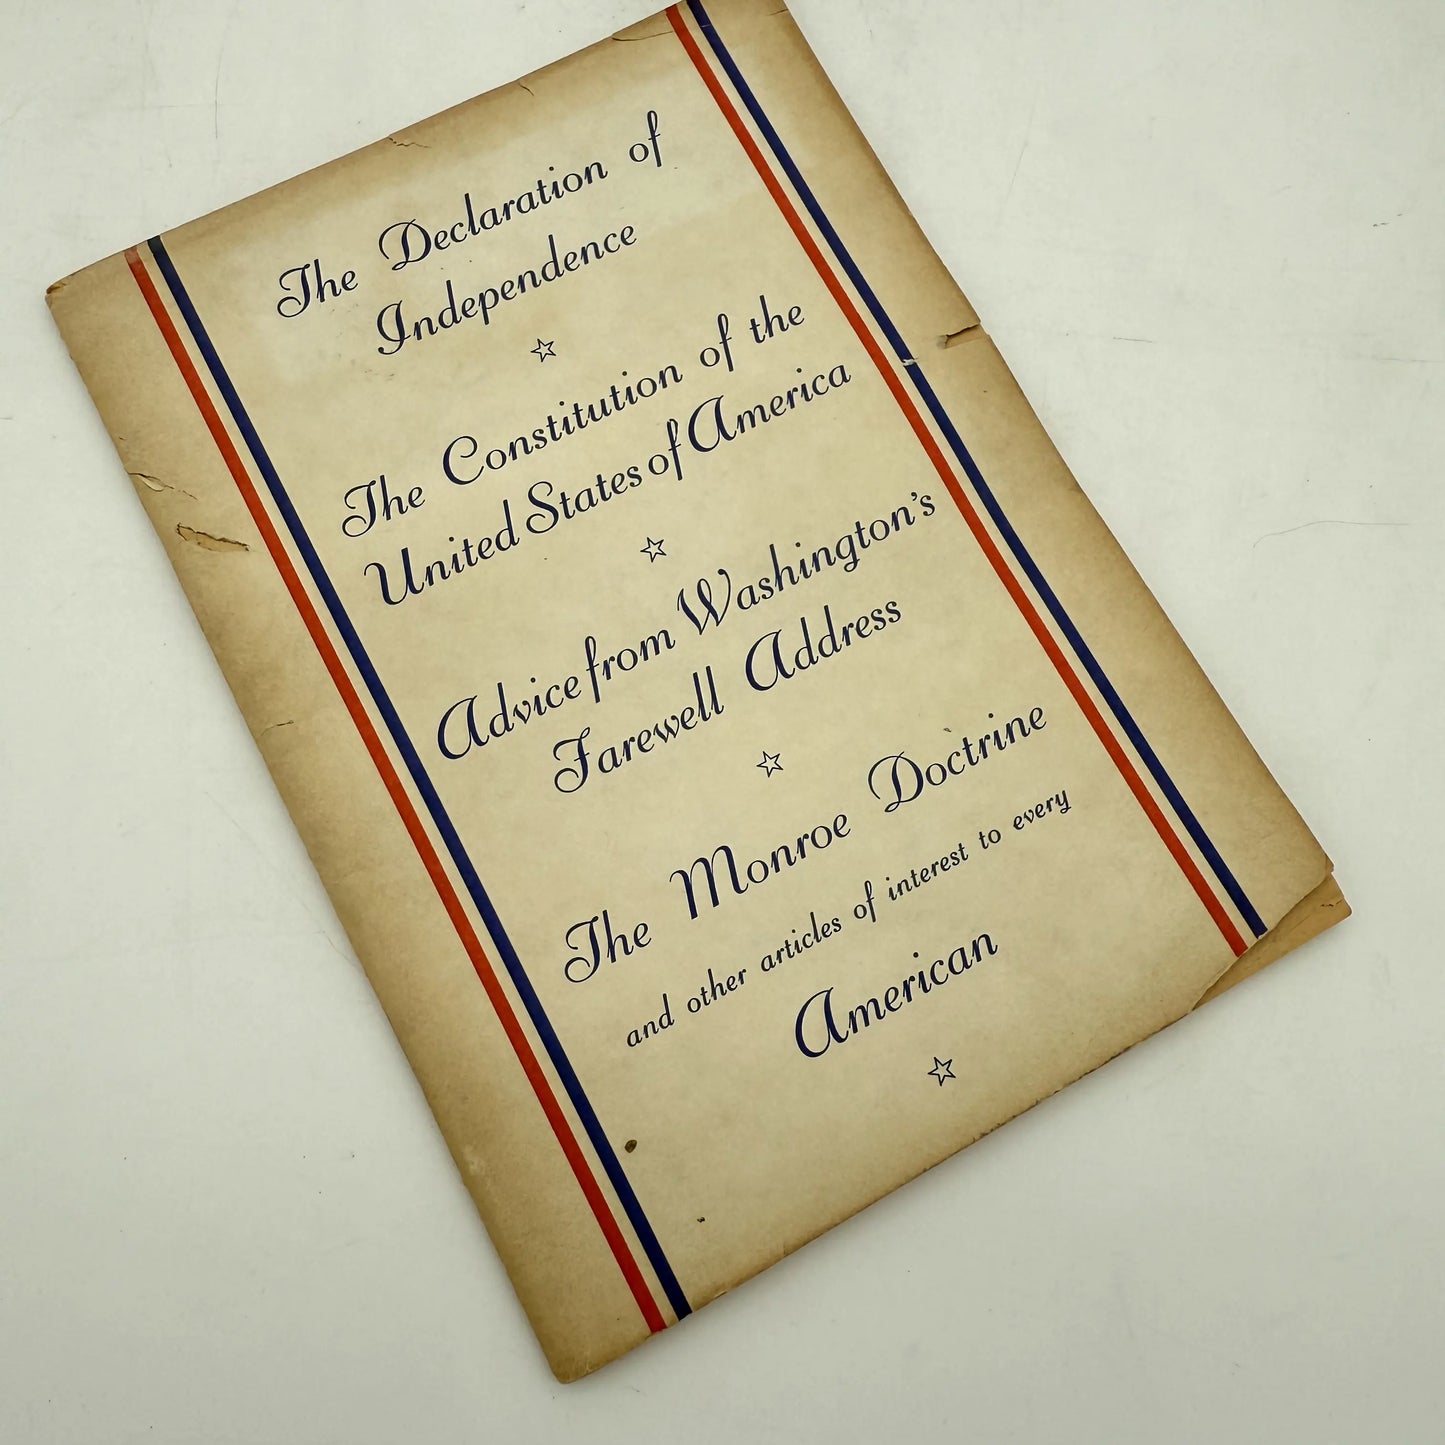 The Declaration of
Independence
The Constitution of the
United States of America
Advice from Washington's
Farewell Address
The Monroe Doctrine
and other articles of interest to every
American